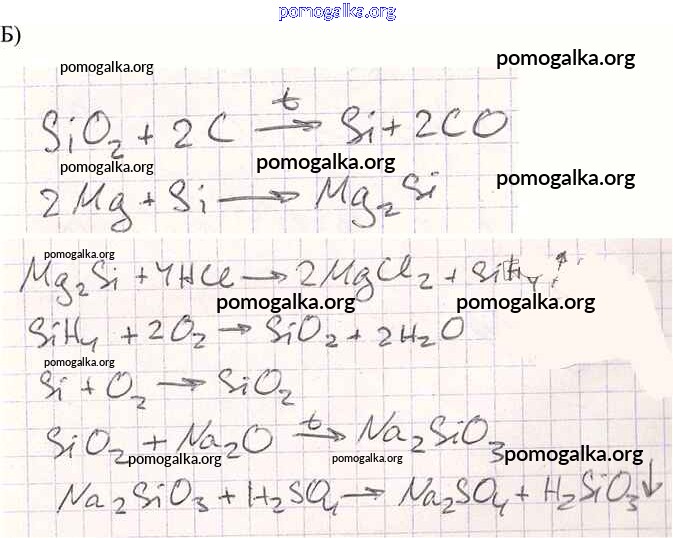 pomogalka.org
Б)
pomogalka.org
pomogalka.org
SiO₂ + 2C —t→ Si + 2CO
pomogalka.org
pomogalka.org
pomogalka.org
2Mg + Si → Mg₂Si
pomogalka.org
Mg₂Si + 4HCl → 2MgCl₂ + SiH₄↑
pomogalka.org
pomogalka.org
SiH₄ + 2O₂ → SiO₂ + 2H₂O
pomogalka.org
Si + O₂ → SiO₂
SiO₂ + Na₂O —t→ Na₂SiO₃
pomogalka.org
pomogalka.org
pomogalka.org
Na₂SiO₃ + H₂SO₄ → Na₂SO₄ + H₂SiO₃↓